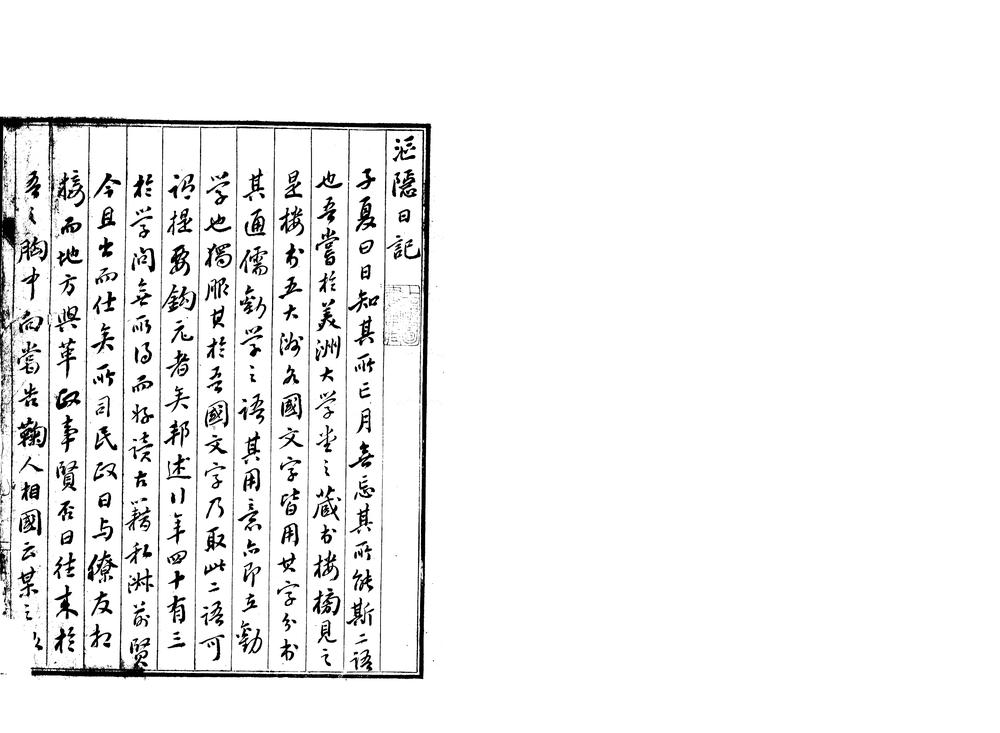 漚隱日記
子夏曰日知其所亡月無忘其所能斯二語
也吾嘗於美洲大学堂之藏書樓楣見之
是樓書五大洲各國文字皆用其字分書
其通儒勸学之語其用意亦即立勸
学也獨服其於吾國文字乃取此二語可
謂提要鈎元者矣邦述行年四十有三
於学問無所得而好读古籍私淑前賢
今且出而仕矣所司民政日与僚友相
接而地方興革政事賢否日往來於
吾之胸中向嘗告鞠人相國云某之